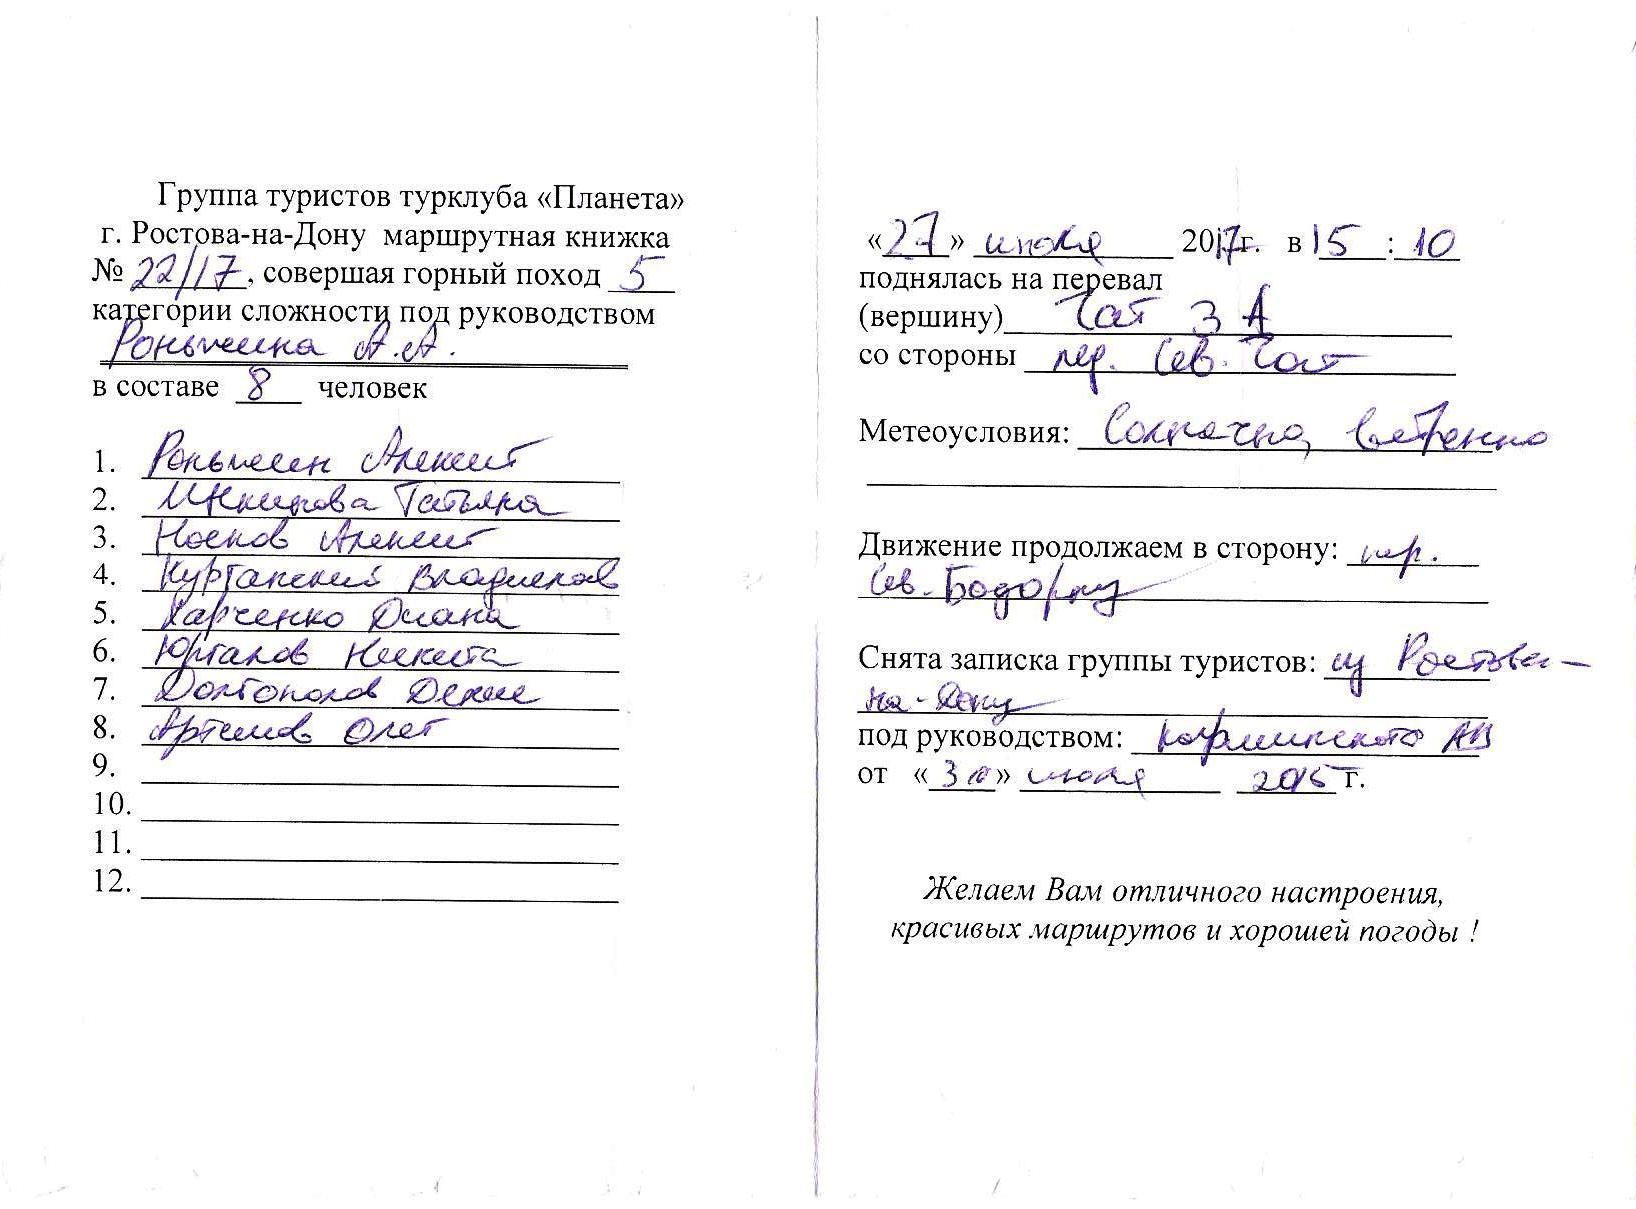 Группа туристов турклуба «Планета»
г. Ростова-на-Дону маршрутная книжка
№ 22/17, совершая горный поход 5
категории сложности под руководством
Роньшина А.А.
в составе 8 человек
1. Роньшин Алексей
2. Татьяна
3. Носков Алексей
4. Курганский Владислав
5. Харченко Диана
6. Никита
7. Долгополов Денис
8. Артемов Олег
9.
10.
11.
12.
«27» июля 2017г. в 15:10
поднялась на перевал
(вершину) Чат 3А
со стороны пер. Сев. Чат
Метеоусловия: Солнечно, ветренно
Движение продолжаем в сторону: пер.
Сев. Бодорку
Снята записка группы туристов: из Ростова-
на-Дону
под руководством: АВ
от «30» июля 2015 г.
Желаем Вам отличного настроения,
красивых маршрутов и хорошей погоды !